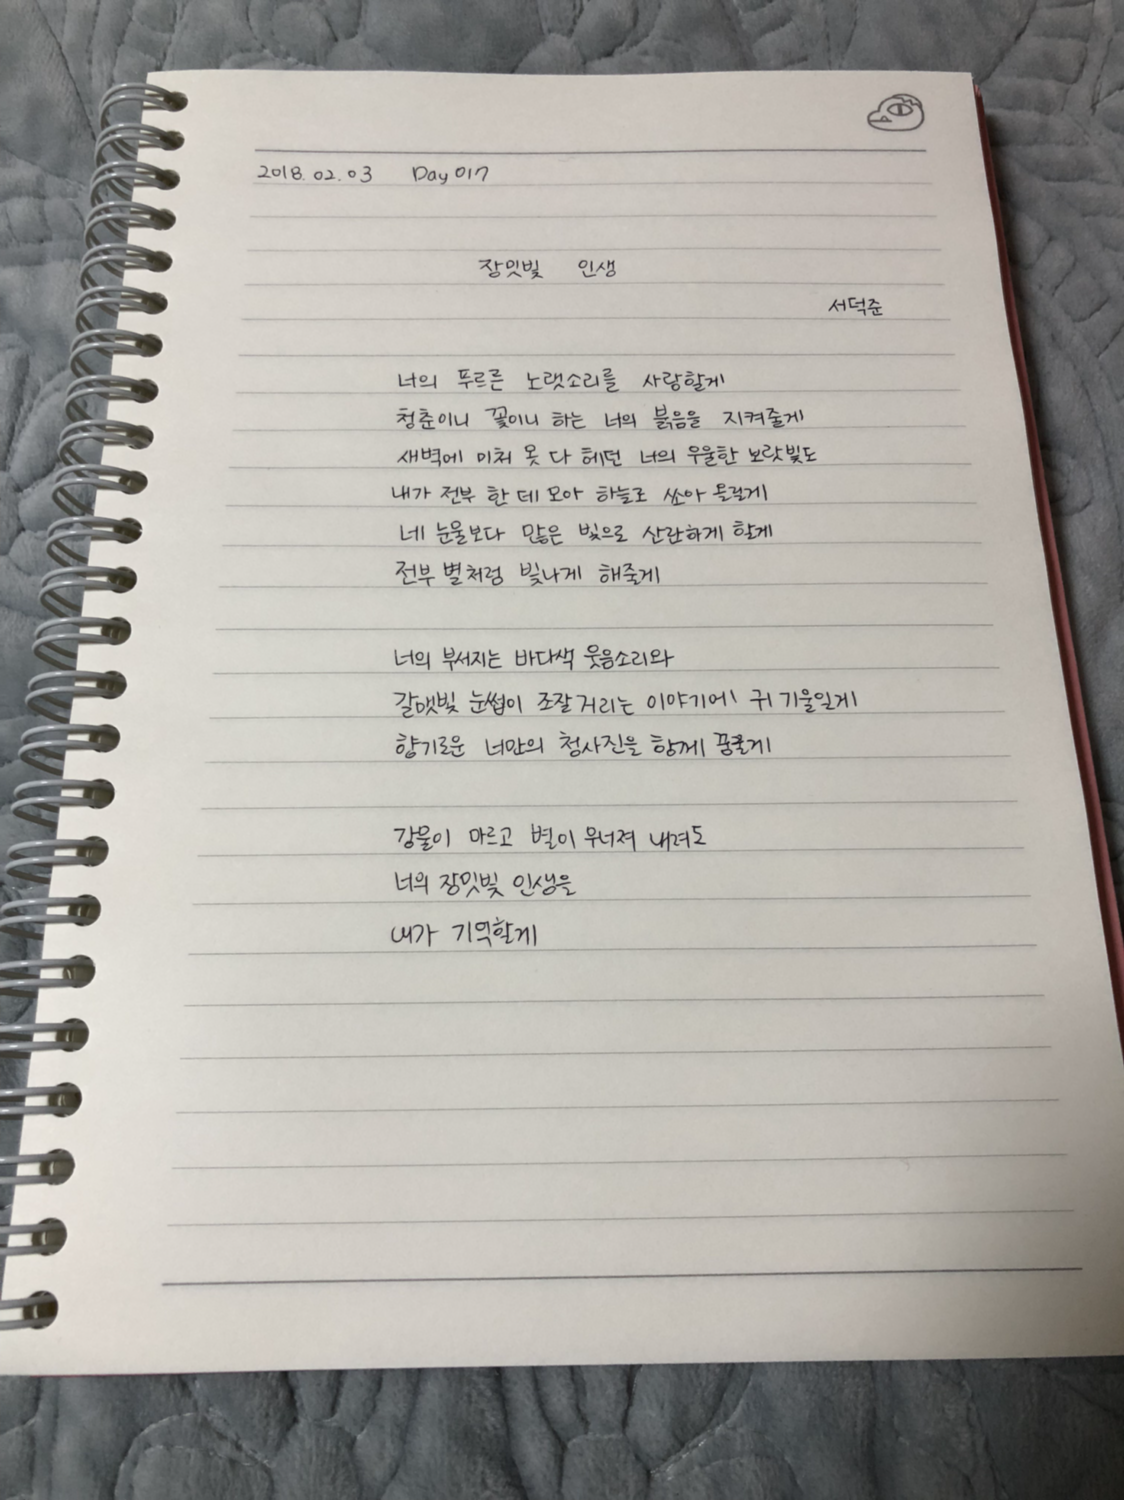 2018. 02. 03 Day 017
장밋빛 인생
서덕준
너의 푸르른 노랫소리를 사랑할게
청춘이니 꽃이니 하는 너의 붉음을 지켜줄게
새벽에 미처 못 다 헤던 너의 우울한 보랏빛도
내가 전부 한 데 모아 하늘로 쏘아 올릴게
네 눈물보다 많은 빛으로 산란하게 할게
전부 별처럼 빛나게 해줄게
너의 부서지는 바다색 웃음소리와
갈맷빛 눈썹이 조잘거리는 이야기에 귀 기울일게
향기로운 너만의 청사진을 함께 꿈꿀게
강물이 마르고 별이 무너져 내려도
너의 장밋빛 인생을
내가 기억할게